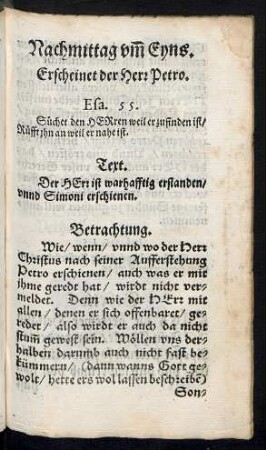 Nachmittag vm̃ Eyns.
Erscheinet der Herr Petro.
Esa. 55.
Süchet den HERren weil er zufinden ist/
Rüfft jhn an weil er nahe ist.
Text.
Der HErr ist warhafftig erstanden/
vnnd Simoni erschienen.
Betrachtung.
Wie/ wenn/ vnnd wo der Herr
Christus nach seiner Aufferstehung
Petro erschienen/ auch was er mit
ihme geredt hat/ wirdt nicht ver-
meldet. Denn wie der HErr mit
allen/ denen er sich offenbaret/ ge-
redet/ also wirdt er auch da nicht
stum̃ gewest sein. Wöllen vns der-
halben darumb auch nicht fast be-
kümmern/ (dann wanns Gott ge-
wolt/ hette ers wol lassen beschreibẽ)
Son-